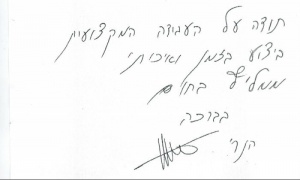 תודה על העבודה המקצועית
ביצוע בזמן ואיכותי
ממליץ בחום
בברכה
הנרי